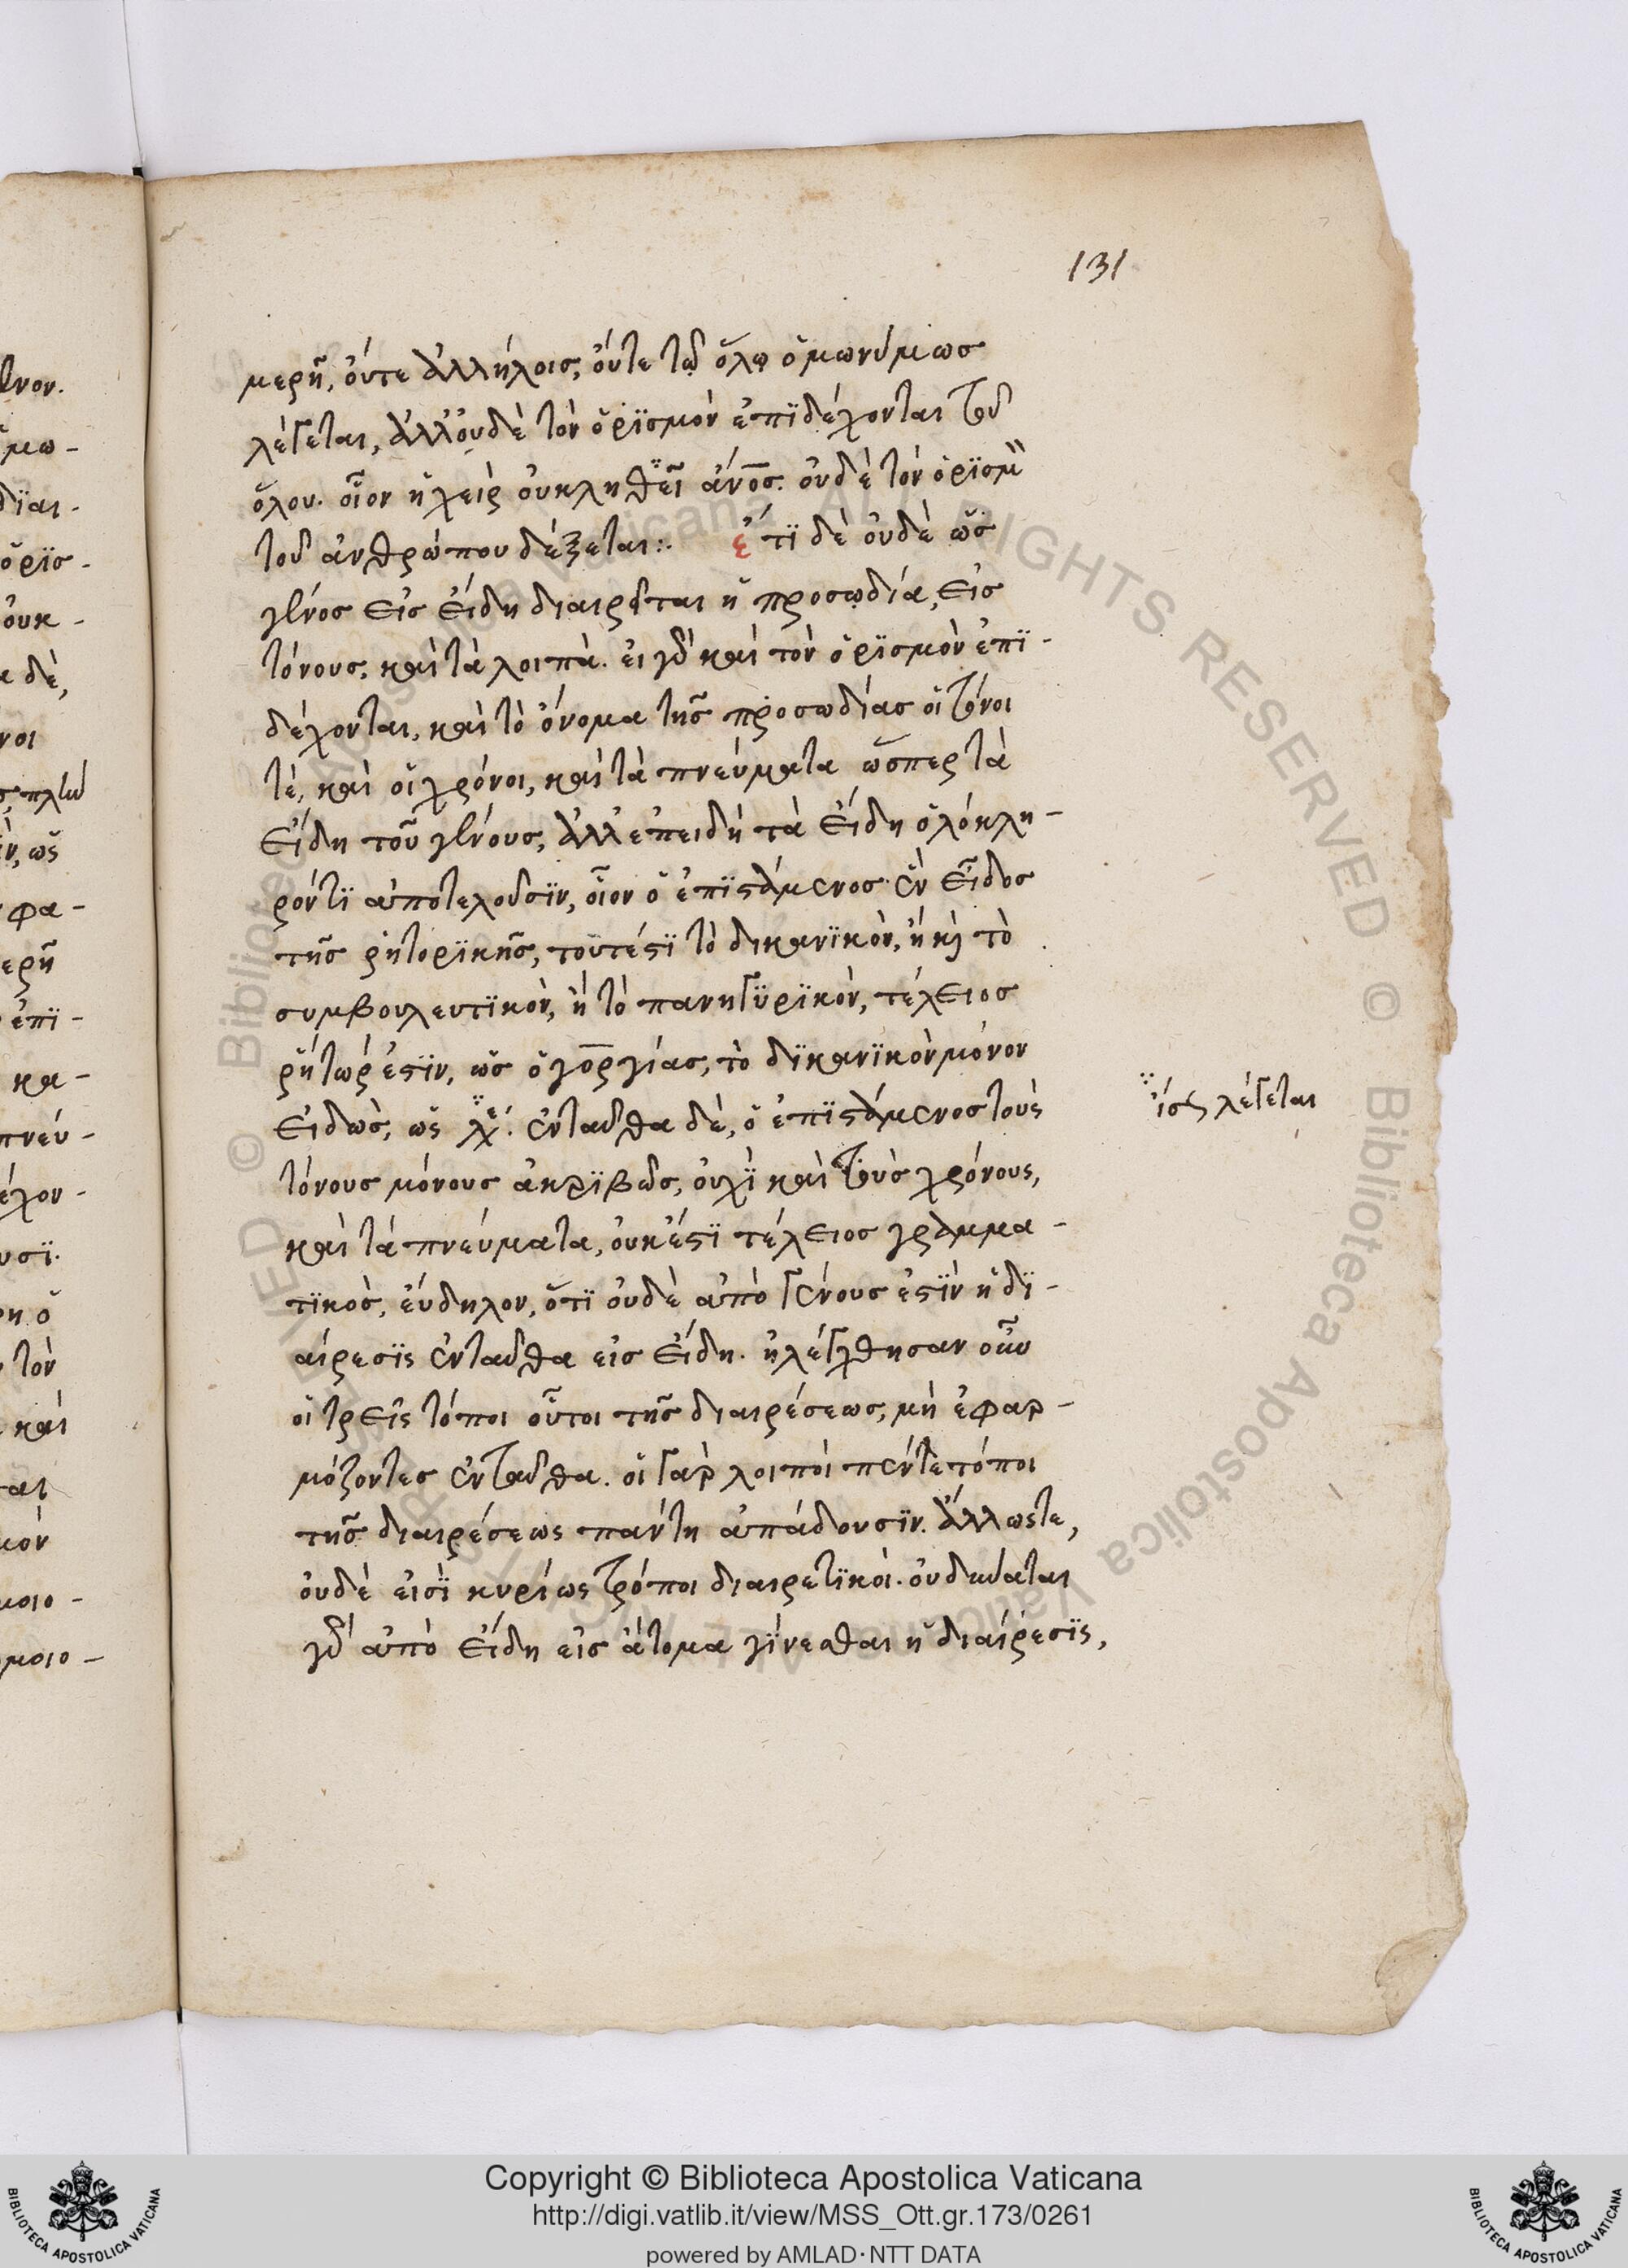 131
μερῆ, οὔτε ἀλλήλοις, οὔτε τῷ ὅλῳ ὁμωνύμως
λέγεται, ἀλλ' οὐδὲ τὸν ὁρϊσμὸν ἐπϊδέχονται τοῦ
ὅλου. οἷον ἡ χεὶρ οὐ κληθείη ἄνος. οὐδὲ τὸν ὁρϊσμὸν
τοῦ ἀνθρώπου δέξεται:. ἔτϊ δὲ οὐδὲ ὡς
γένος εἰς εἴδη διαιρεῖται ἡ προσῳδία, εἰς
τόνους, καὶ τὰ λοιπά. εἰ γὰρ καὶ τὸν ὁρϊσμὸν ἐπϊ-
δέχονται, καὶ τὸ ὄνομα τῆς προσωδίας οἱ τόνοι
τέ, καὶ οἱ χρόνοι, καὶ τὰ πνεύματα ὥσπερ τὰ
εἴδη τοῦ γένους, ἀλλ' ἐπειδὴ τὰ εἴδη ὁλόκλη-
ρόν τϊ ἀποτελοῦσϊν, οἷον ὁ ἐπϊστάμενος ἓν εἶδος
τῆς ῥητορϊκῆς, τουτέστϊ τὸ δικανϊκὸν, ἢ καὶ τὸ
συμβουλευτϊκὸν, ἢ τὸ πανηγϋρϊκὸν, τέλειος
ῥήτωρ ἐστϊν, ὡς ὁ γοργίας, τὸ δϊκανϊκὸν μόνον
εἰδὼς, ὡς λχ. ἐνταῦθα δὲ, ὁ ἐπϊστάμενος τοὺς
ἴσς λέγεται
τόνους μόνους ἀκρϊβῶς, οὐχϊ καὶ τοὺς χρόνους,
καὶ τὰ πνεύματα, οὐκ ἔστϊ τέλειος γραμμα-
τϊκὸς, εὔδηλον, ὅτϊ οὐδὲ ἀπὸ γένους ἐστϊν ἡ δϊ-
αίρεσϊς ἐνταῦθα εἰς εἴδη. ἠλέγχθησαν οὖν
οἱ τρεῖς τόποι οὗτοι τῆς διαιρέσεως, μὴ ἐφαρ-
μόζοντες ἐνταῦθα. οἱ γὰρ λοιποὶ πέντε τόποι
τῆς διαιρέσεως πάντη ἀπάδουσϊν. ἄλλωστε,
οὐδὲ εἰσϊ κυρίως τρόποι διαιρετϊκοί. οὐ δύναται
γὰρ ἀπὸ εἴδη εἰς ἄτομα γίνεσθαι ἡ διαίρεσϊς,
Copyright © Biblioteca Apostolica Vaticana
http://digi.vatlib.it/view/MSS_Ott.gr.173/0261
powered by AMLAD·NTT DATA